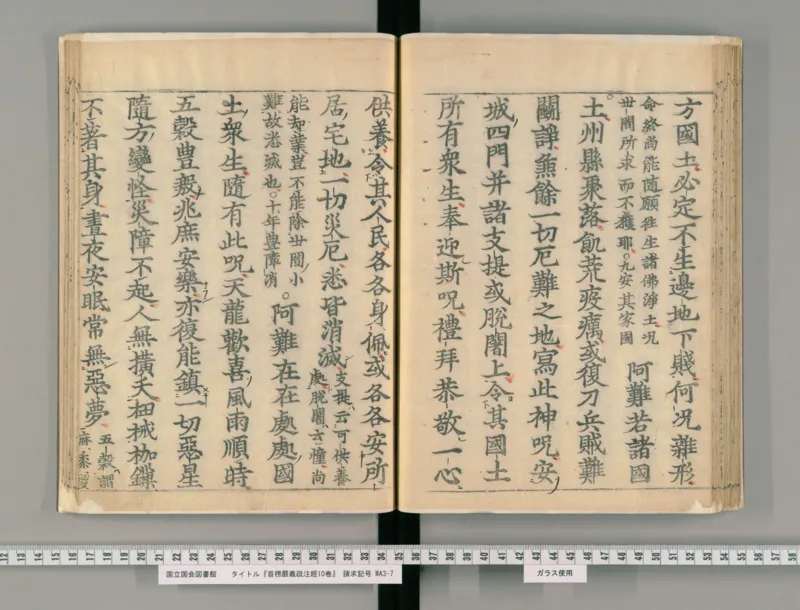 方國土必定不生邊地下賤何況雜形
命終尚能隨願往生諸佛淨土况
世間所求而不獲耶○九安其家國
阿難若諸國
土州縣聚落飢荒疫癘或復刀兵賊難
鬭諍兼餘一切厄難之地寫此神呪安
城四門并諸支提或脫闍上令其國土
所有衆生奉迎斯呪禮拜恭敬一心
供養令其人民各各身佩或各各安所
居宅地一切災厄悉皆消滅
支提云可供養
處脫闍云幢尚
能却業豈不能除世間小
難故悉滅也○十年豐障消
○阿難在在處處國
土衆生隨有此呪天龍歡喜風雨順時
五穀豐殷兆庶安樂亦復能鎮一切惡星
隨方變怪災障不起人無橫夭杻械枷鎖
不著其身晝夜安眠常無惡夢
五穀謂
麻黍
12 13 14 15 16 17 18 19 20 21 22 23 24 25 26 27 28 29 30 31 32 33 34 35 36 37 38 39 40 41 42 43 44 45 46 47 48 49 50 51 52 53 54 55 56 57 58
国立国会図書館 タイトル『首楞嚴義疏注経10巻』 請求記号 WA3-7
ガラス使用